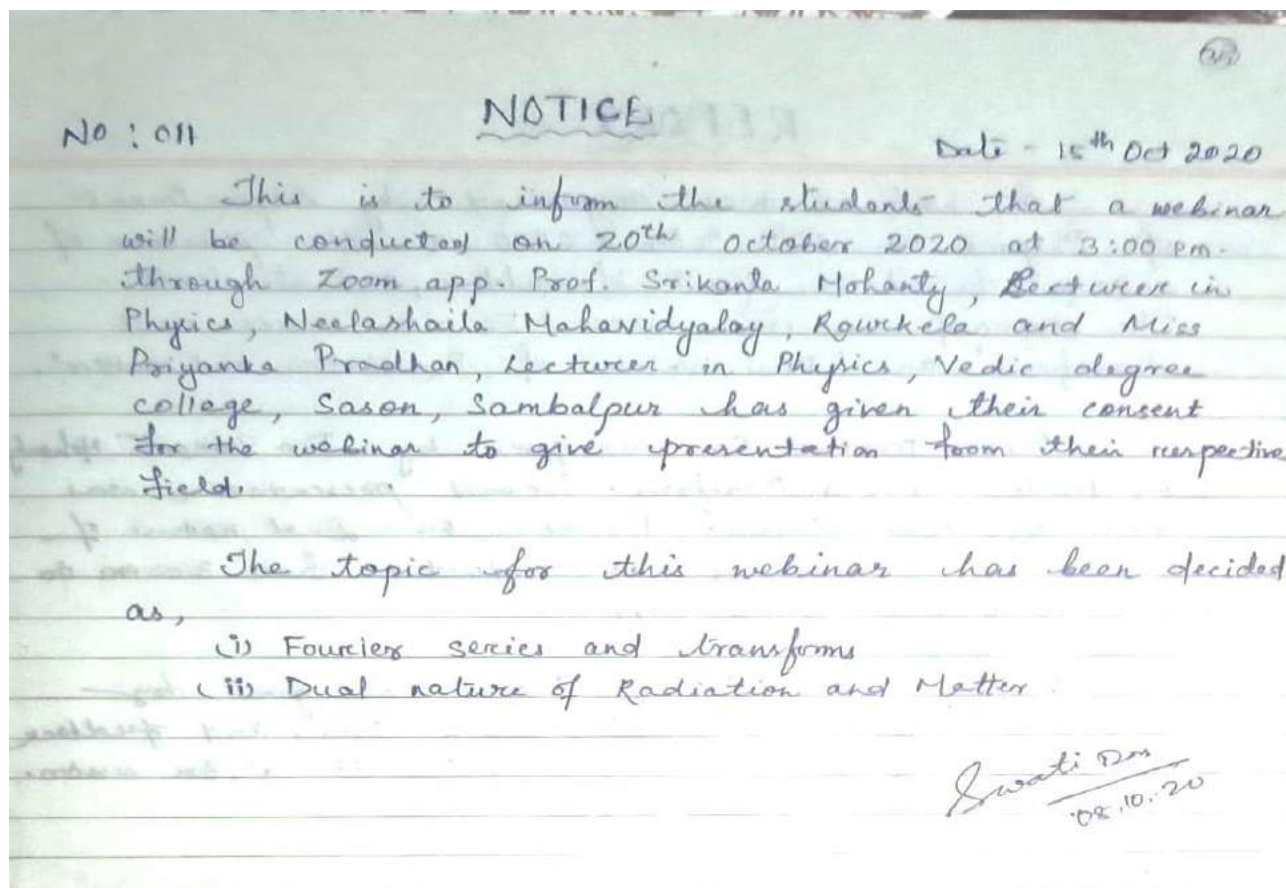 NOTICE
No : 011
Date - 15th Oct 2020
This is to inform the students that a webinar
will be conducted on 20th October 2020 at 3:00 Pm.
through Zoom app. Prof. Srikanta Mohanty, Lecturer in
Physics, Neelashaila Mahavidyalay, Rourkela and Miss
Priyanka Pradhan, Lecturer in Physics, Vedic degree
college, Sason, Sambalpur has given their consent
for the webinar to give presentation from their respective
field.
The topic for this webinar has been decided
as,
(i) Fourier series and transforms
(ii) Dual nature of Radiation and Matter.
Swati Das
08.10.20